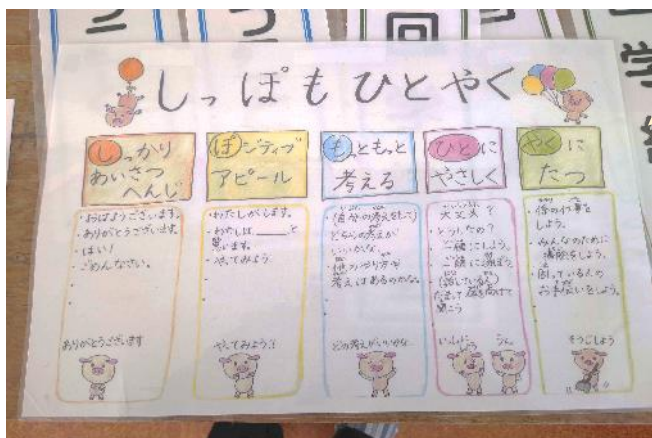 しっぽもひとやく
しっかり
あいさつ
へんじ
・おはようございます。
・ありがとうございます。
・はい!
・ごめんなさい。
ありがとうございます
ぽジティブ
アピール
・わたしがします。
・わたしは____と
思います。
・やってみよう
やってみよう!!
もっともっと
考える
どちらの考えが
いいかな。
・他のやり方や
考えはあるのかな。
どの考えがいいかな
ひとに
やさしく
・大丈夫?
・どうしたの?
・ご一緒にしよう。
・ご一緒に遊ぼう。
だまって
聞こう
いっしょに
うん。
やくに
たつ
・係の仕事を
しよう。
・みんなのために
掃除をしよう。
・困っている人の
お手伝いをしよう。
そうじしよう